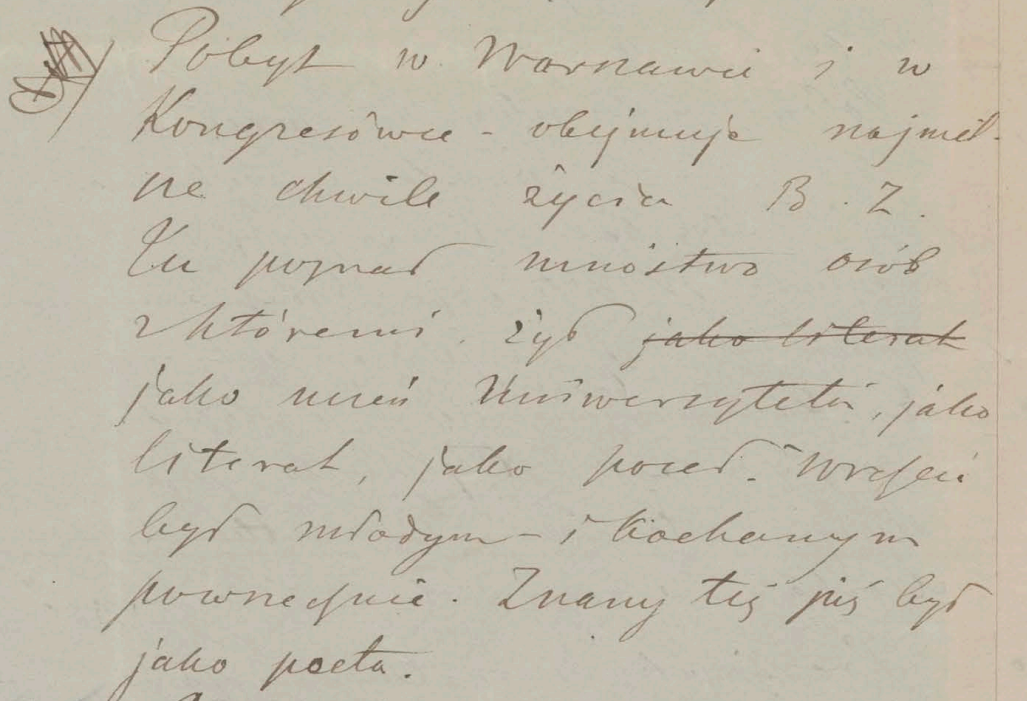 Pobyt w Warszawie i w
Kongresówce - obejmuje najmil-
sze chwile życia B. Z.
Tu poznał mnóstwo osób
z któremi żył ~~jako literat~~
jako uczeń Uniwersytetu, jako
literat, jako poseł. Wreszcie
był młodym - i kochanym
powszechnie. Znany też już był
jako poeta.